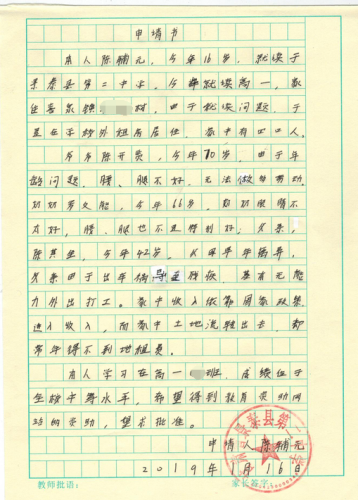 申请书
本人陈辅元，今年16岁，就读于
景泰县第二中学，今年就读高一，家
住喜泉镇 村，由于就读问题，于
是在学校外租房居住，家中有四口人。
爷爷陈开贵，今年70岁，由于年
龄问题，腰、腿不好，无法做劳动，
奶奶罗文胎，今年66岁，奶奶眼睛不
太好，腰、腿也不是特别好，父亲，
陈其，今年42岁，父母早年离异，
父亲由于出车祸导至残疾，基本无能
力外出打工。家中收入依靠国家政策
进入收入，而家中土地流转出去，都
常年得不到地租息。
本人学习在高一 班，成绩位于
全级中等水平，希望得到教育资助网
站的资助，望求批准。
申请人陈辅元
2019年 月16日
教师批语： 家长签字：